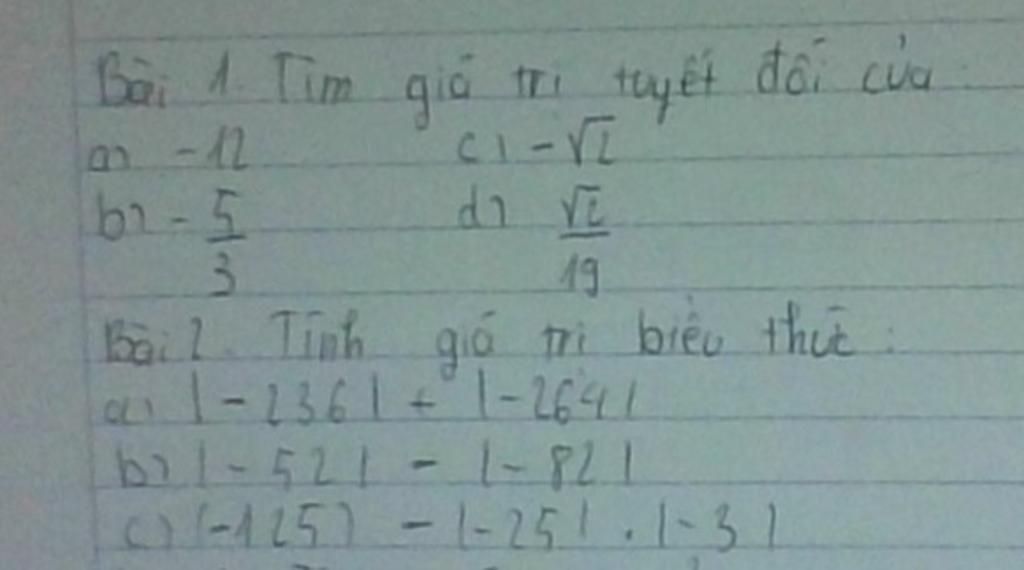 Bài 1. Tìm giá trị tuyệt đối của:
a) -12 c) -√2
b) -5/3 d) √2/19
Bài 2. Tính giá trị biểu thức:
a) |-236| + |-264|
b) |-52| - |-82|
c) (-125) - |-25| . |-3|